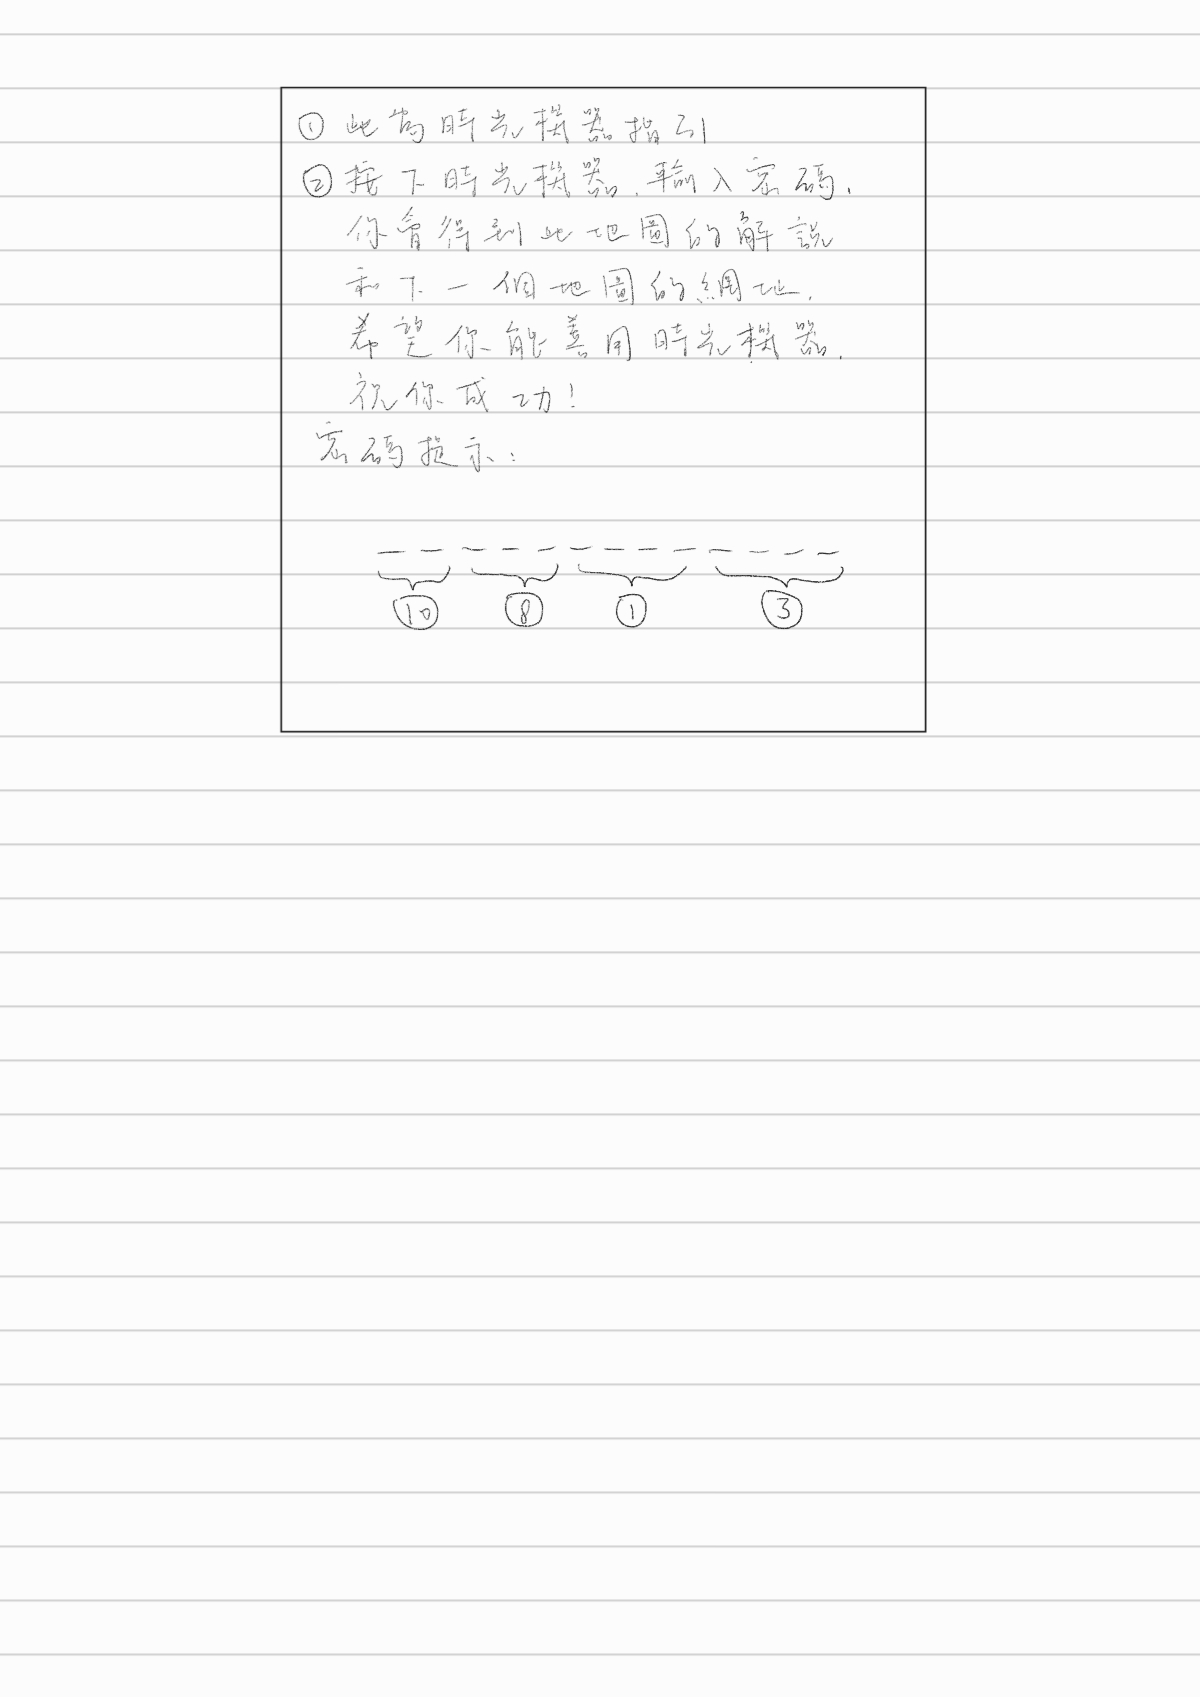 ① 此為時光機器指引
② 按下時光機器.輸入密碼.
你會得到此地圖的解說
和下一個地圖的網址.
希望你能善用時光機器.
祝你成功!
密碼提示:
_ _ _ _ _ _ _ _ _ _ _ _ _
⑩ ⑧ ① ③